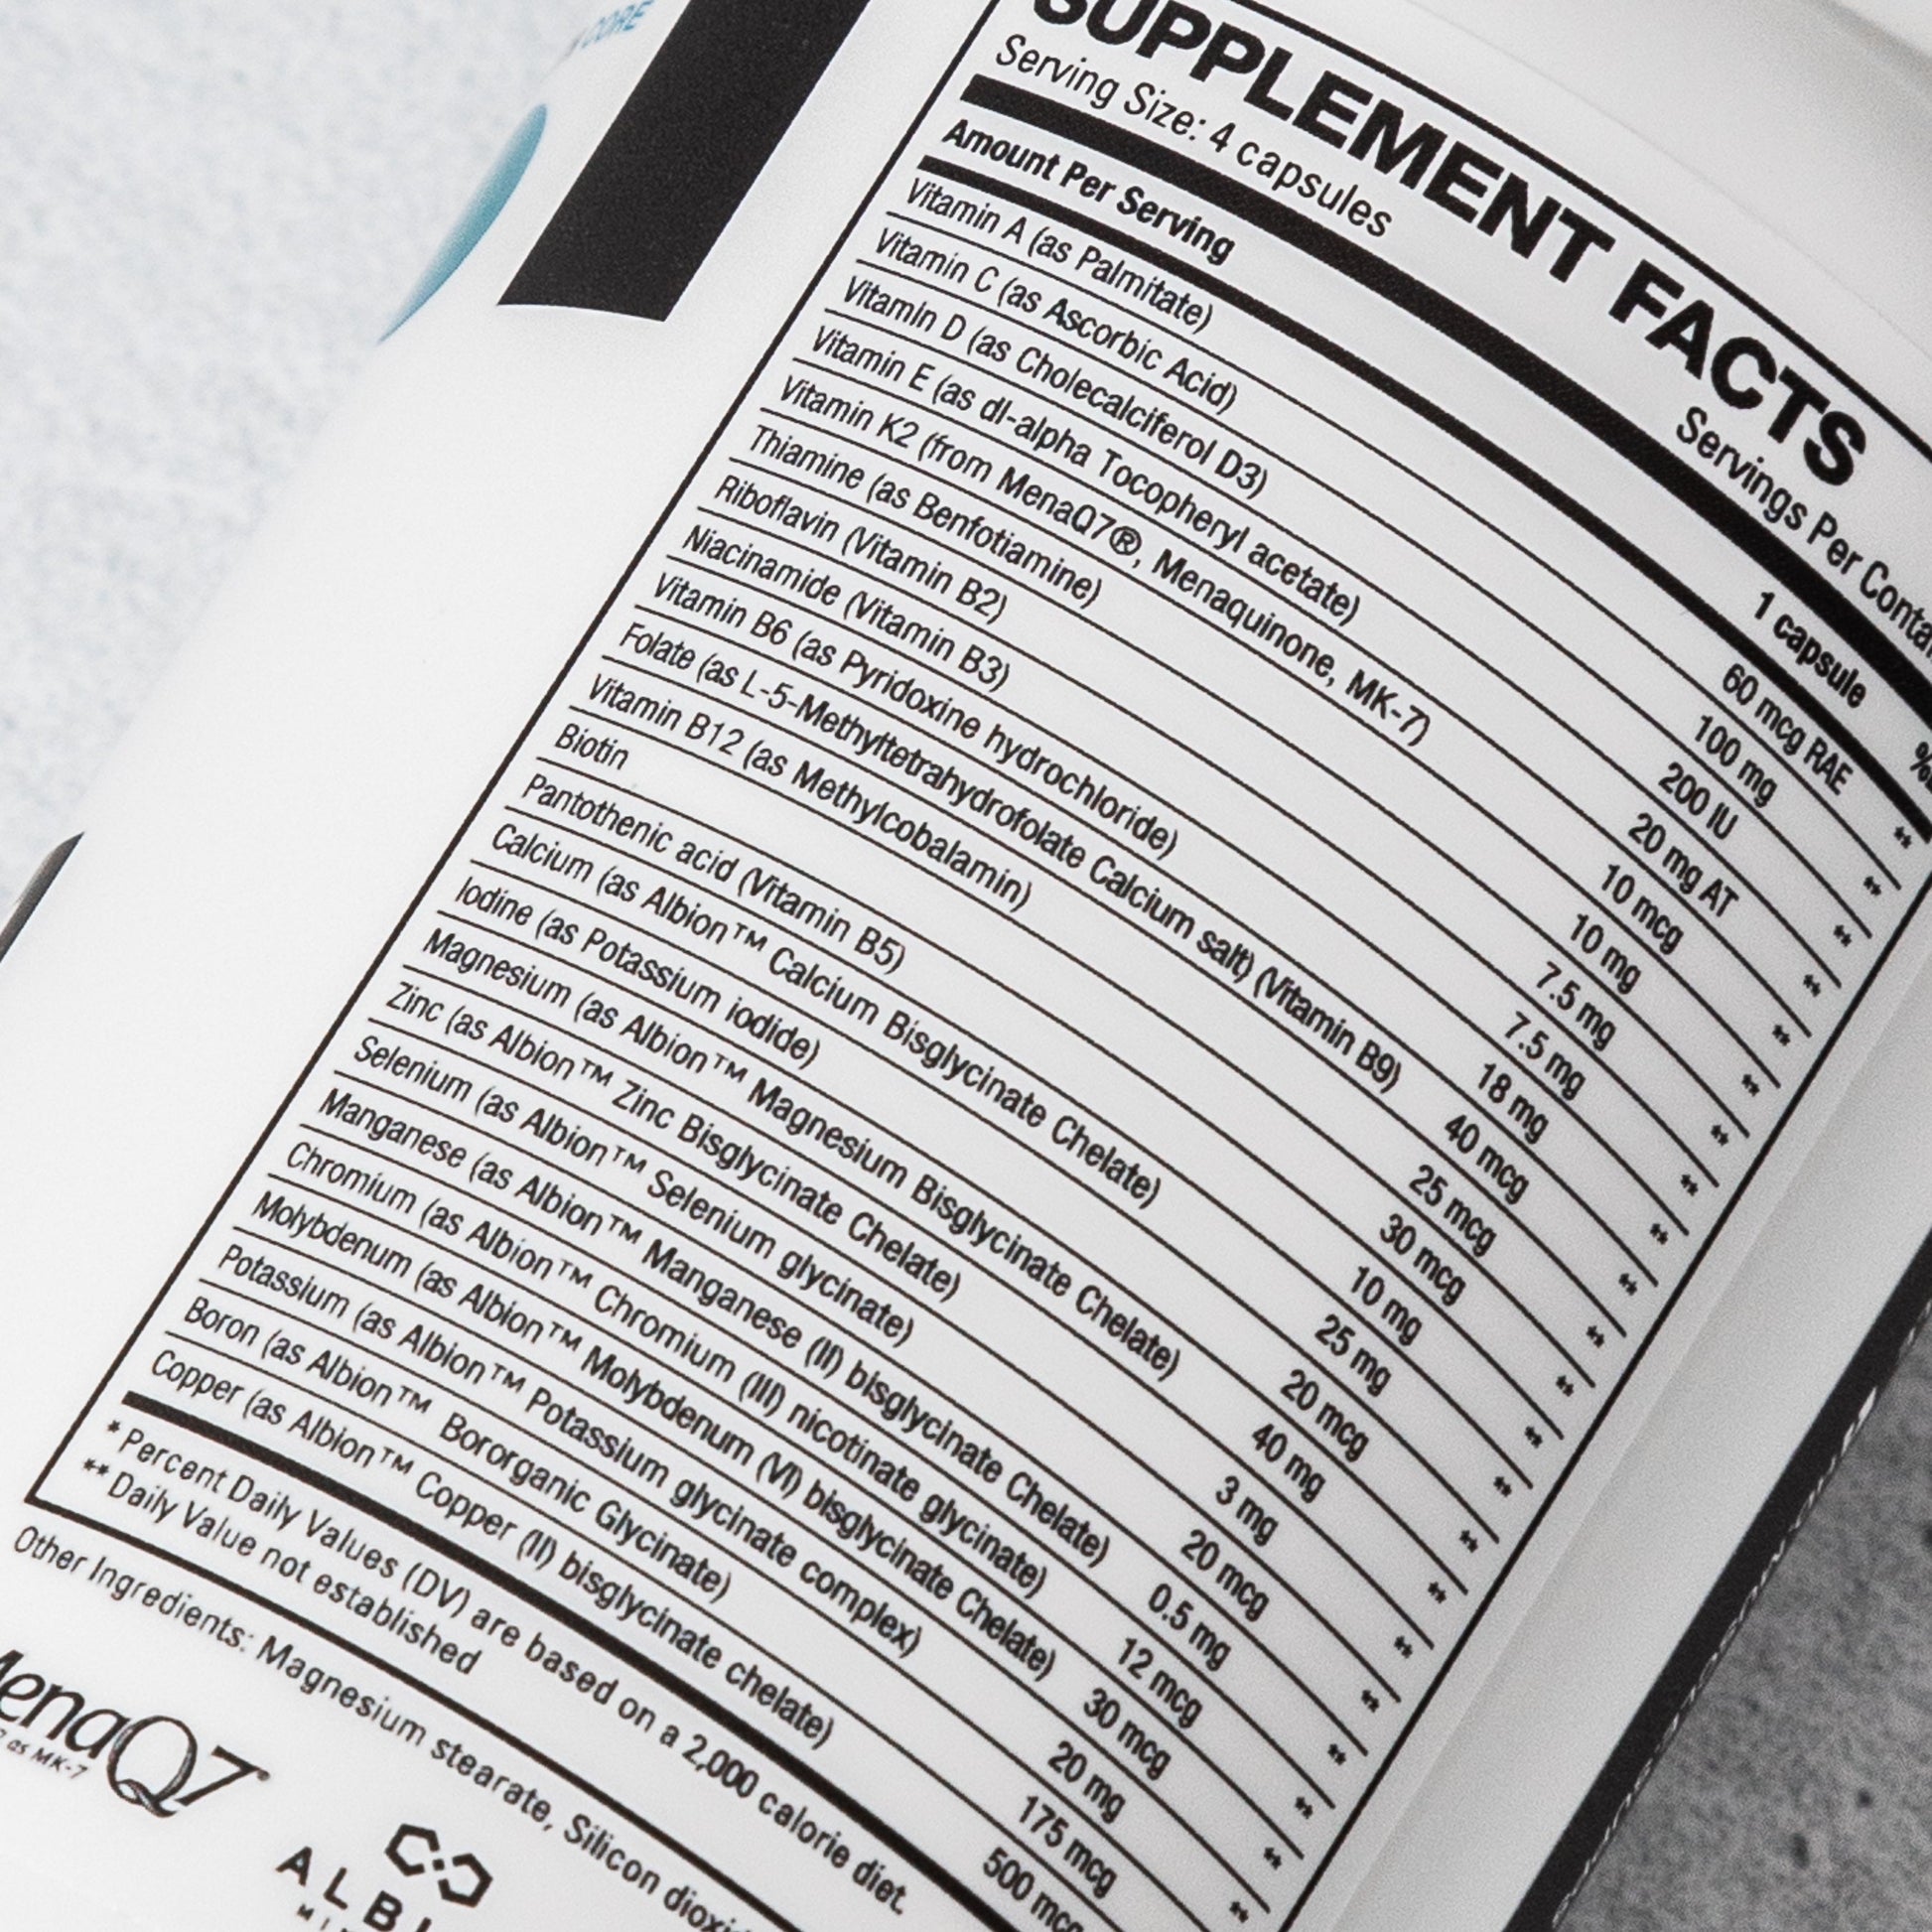 CORE
SUPPLEMENT FACTS
Serving Size: 4 capsules Servings Per
Amount Per Serving 1 capsule %
Vitamin A (as Palmitate) 60 mcg RAE **
Vitamin C (as Ascorbic Acid) 100 mg **
Vitamin D (as Cholecalciferol D3) 200 IU **
Vitamin E (as dl-alpha Tocopheryl acetate) 20 mg AT **
Vitamin K2 (from MenaQ7®, Menaquinone, MK-7) 10 mcg **
Thiamine (as Benfotiamine) 10 mg **
Riboflavin (Vitamin B2) 7.5 mg **
Niacinamide (Vitamin B3) 7.5 mg **
Vitamin B6 (as Pyridoxine hydrochloride) 18 mg **
Folate (as L-5-Methyltetrahydrofolate Calcium salt) (Vitamin B9) 40 mcg **
Vitamin B12 (as Methylcobalamin) 25 mcg **
Biotin 30 mcg **
Pantothenic acid (Vitamin B5) 10 mg **
Calcium (as Albion™ Calcium Bisglycinate Chelate) 25 mg **
Iodine (as Potassium iodide) 20 mcg **
Magnesium (as Albion™ Magnesium Bisglycinate Chelate) 40 mg **
Zinc (as Albion™ Zinc Bisglycinate Chelate) 3 mg **
Selenium (as Albion™ Selenium glycinate) 20 mcg **
Manganese (as Albion™ Manganese (II) bisglycinate Chelate) 0.5 mg **
Chromium (as Albion™ Chromium (III) nicotinate glycinate) 12 mcg **
Molybdenum (as Albion™ Molybdenum (VI) bisglycinate Chelate) 30 mcg **
Potassium (as Albion™ Potassium glycinate complex) 20 mg **
Boron (as Albion™ Bororganic Glycinate) 175 mcg **
Copper (as Albion™ Copper (II) bisglycinate chelate) 500 mcg
* Percent Daily Values (DV) are based on a 2,000 calorie diet.
** Daily Value not established
Other Ingredients: Magnesium stearate, Silicon
MenaQ7
as MK-7
ALBI